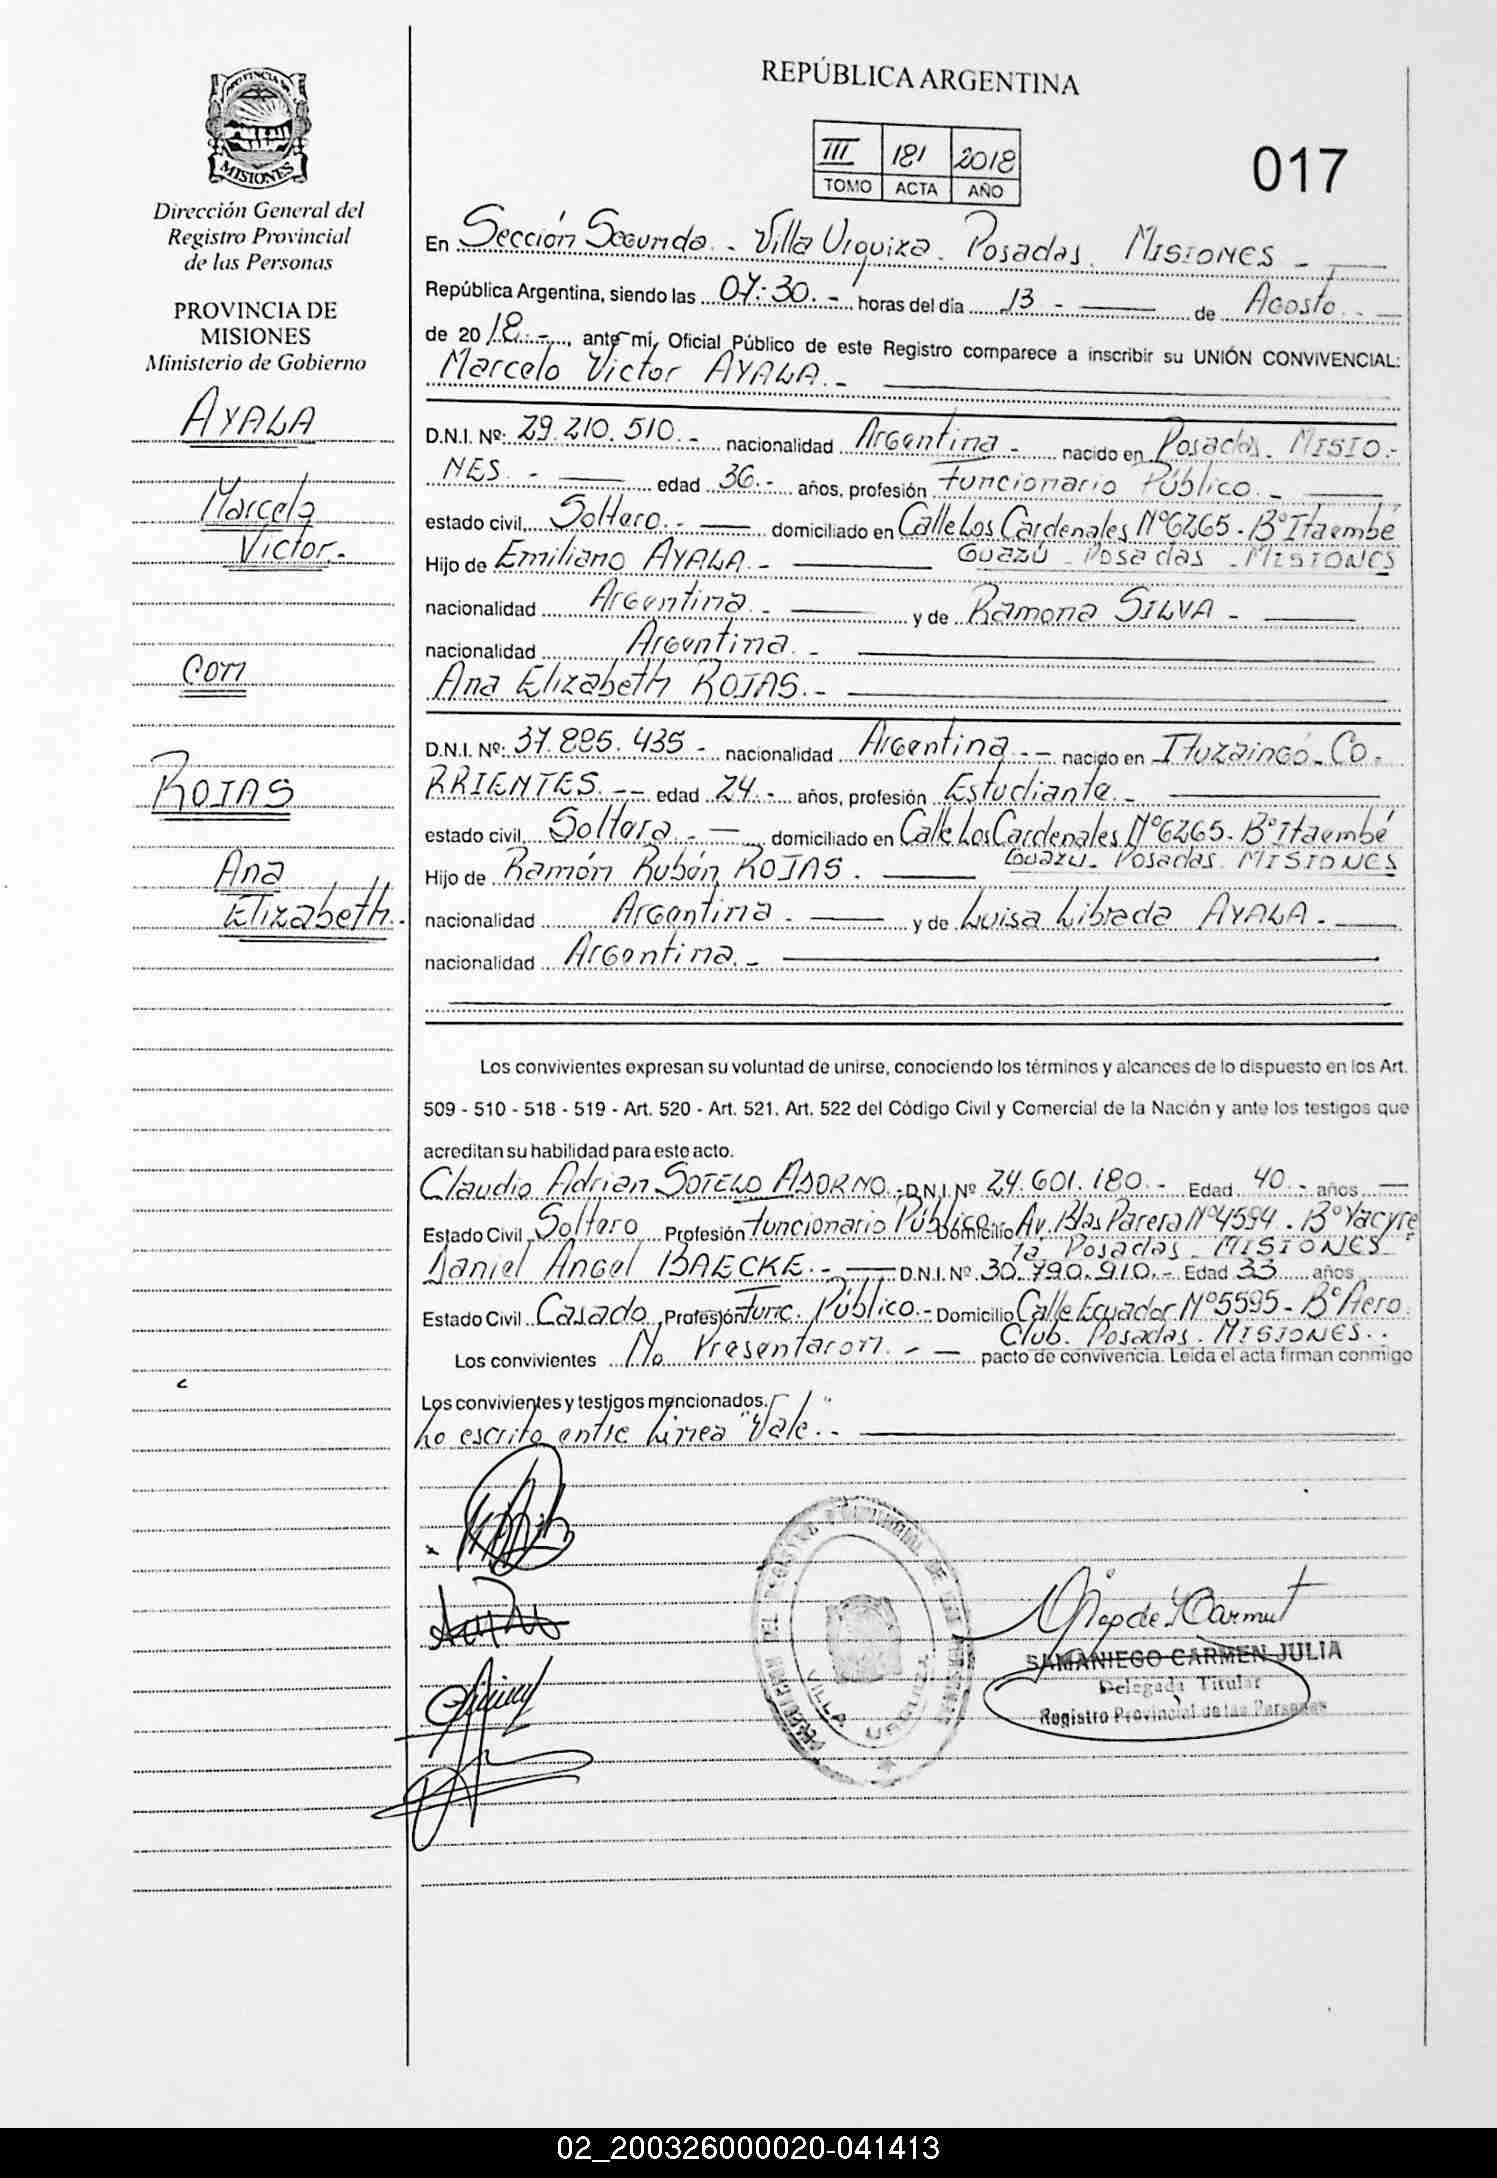 REPÚBLICA ARGENTINA
PROVINCIA DE
MISIONES
III 181 2018
TOMO ACTA AÑO
017
Dirección General del
Registro Provincial
de las Personas
PROVINCIA DE
MISIONES
Ministerio de Gobierno
AYALA
Marcelo
Victor.-
Con
ROJAS
Ana
Elizabeth.-
En Sección Segunda.- Villa Urquiza. Posadas. MISIONES -
República Argentina, siendo las 07:30.- horas del día 13 - de Agosto.-
de 2018.-, ante mí, Oficial Público de este Registro comparece a inscribir su UNIÓN CONVIVENCIAL:
Marcelo Victor AYALA.-
D.N.I. Nº: 29.210.510.- nacionalidad Argentina.- nacido en Posadas. MISIO.-
NES.- edad 36.- años, profesión Funcionario Público.-
estado civil, Soltero.- domiciliado en Calle Los Cardenales Nº6265.- Bº Itaembé
Guazú - Posadas - MISIONES
Hijo de Emiliano AYALA.-
nacionalidad Argentina.- y de Ramona SILVA -
nacionalidad Argentina.-
Ana Elizabeth ROJAS.-
D.N.I. Nº: 37.885.435 - nacionalidad Argentina.- nacido en Ituzaingó - CO.
RRIENTES.-- edad 24.- años, profesión Estudiante.-
estado civil, Soltera.- domiciliado en Calle Los Cardenales Nº6265.- Bº Itaembé
Guazú - Posadas. MISIONES
Hijo de Ramón Rubén ROJAS.
nacionalidad Argentina.- y de Luisa Librada AYALA.-
nacionalidad Argentina.-
Los convivientes expresan su voluntad de unirse, conociendo los términos y alcances de lo dispuesto en los Art.
509 - 510 - 518 - 519 - Art. 520 - Art. 521. Art. 522 del Código Civil y Comercial de la Nación y ante los testigos que
acreditan su habilidad para esto acto.
Claudio Adrian SOTELO ADORNO.- D.N.I. Nº 24.601.180.- Edad 40.- años
Estado Civil Soltero Profesión Funcionario Público.- Domicilio Av. Blas Parera Nº4594.- Bº Yacyre
tá Posadas - MISIONES
Daniel Angel BAECKE.- D.N.I. Nº 30.790.910.- Edad 33 años
Estado Civil Casado Profesión Func. Público.- Domicilio Calle Ecuador Nº5595 - Bº Aero
Club. Posadas. MISIONES..
Los convivientes No Presentaron.- pacto de convivencia. Leída el acta firman conmigo
Los convivientes y testigos mencionados.
Lo escrito entre Linea "Vale".-
VILLA URQUIZA
SAMANIEGO CARMEN JULIA
Delegada Titular
Registro Provincial de las Personas
02_200326000020-041413